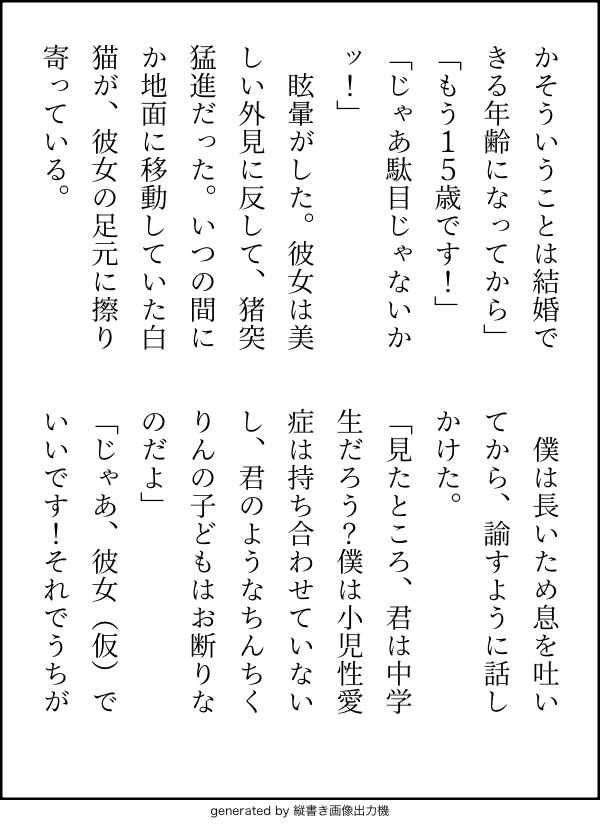 かそういうことは結婚で
きる年齢になってから」
「もう１５歳です！」
「じゃあ駄目じゃないか
ッ！」
　眩暈がした。彼女は美
しい外見に反して、猪突
猛進だった。いつの間に
か地面に移動していた白
猫が、彼女の足元に擦り
寄っている。
　僕は長いため息を吐い
てから、諭すように話し
かけた。
「見たところ、君は中学
生だろう？僕は小児性愛
症は持ち合わせていない
し、君のようなちんちく
りんの子どもはお断りな
のだよ」
「じゃあ、彼女（仮）で
いいです！それでうちが
generated by 縦書き画像出力機